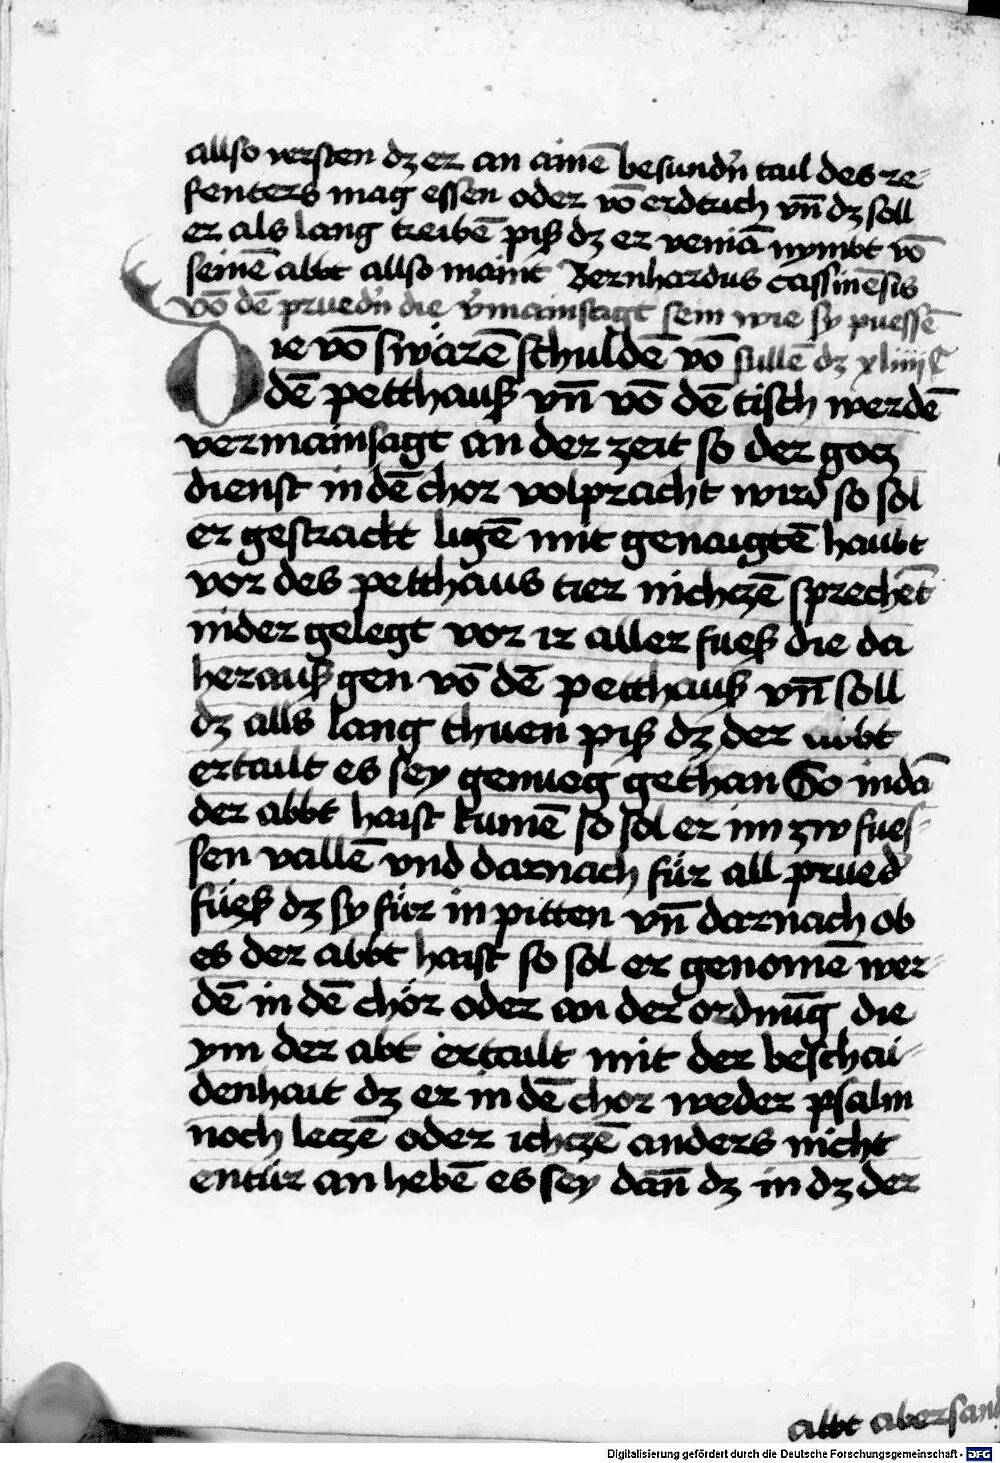 allso versten dz er an aimē besundn̄ tail des re-
fenters mag essen oder vō erdtrich vn̄ dz soll
er als lang treibē piß dz er veniā nymbt vō
seinē abbt allso maint Bernhardus cassinēsis
vō dē pruedn̄ die v̄mainsagt sein wie sy puessē
Die vō swärē schuldē vō sullē dz xliiij C
dē petthauß vn̄ vō dē tisch werdē
vermainsagt an der zeit so der gocz
dienst in dē chor volpracht wird so sol
er gestrackt ligē mit genaigtē haubt
vor des petthaus tier nichczē sprechēt
nider gelegt vor ir aller fueß die da
herauß gen vō dē petthauß vn̄ soll
dz alls lang thuen piß dz der abbt
ertailt es sey genueg gethan So in dā
der abbt haist kumē so sol er im zw fues-
sen vallē vnd darnach für all prued̄
füeß dz sy für in pitten vn̄ darnach ob
es der abbt haist so sol er genomē wer-
dē in dē chör oder an der ordnūg die
ym der abt ertailt mit der beschai-
denhait dz er in dē chor weder psalm
noch leczē oder ichczē anders nicht
entür an hebē es sey dan̄ dz in dz der
abbt abersand
Digitalisierung gefördert durch die Deutsche Forschungsgemeinschaft - DFG